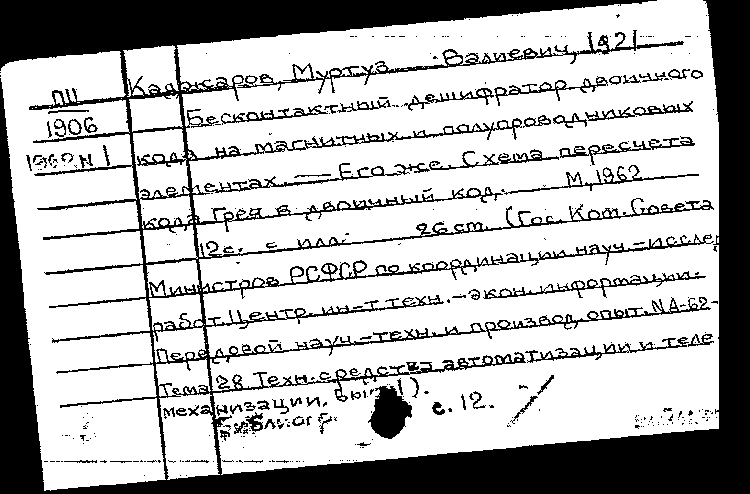 ПII
1906
1962 N 1
Каджаров, Муртуз Валиевич, 1921
Бесконтактный дешифратор двоичного
кода на магнитных и полупроводниковых
элементах. — Его же. Схема пересчета
кода Грея в двоичный код. М, 1962
12с. с илл. 26 см. (Гос. Ком. Совета
Министров РСФСР по координации науч.-исслед
работ. Центр. ин-т техн.-экон. информации.
Передовой науч.-техн. и производ. опыт. NА-62-
Тема 28 Техн. средства автоматизации и теле
механизации. Вып. 1).
Библиогр. с. 12.